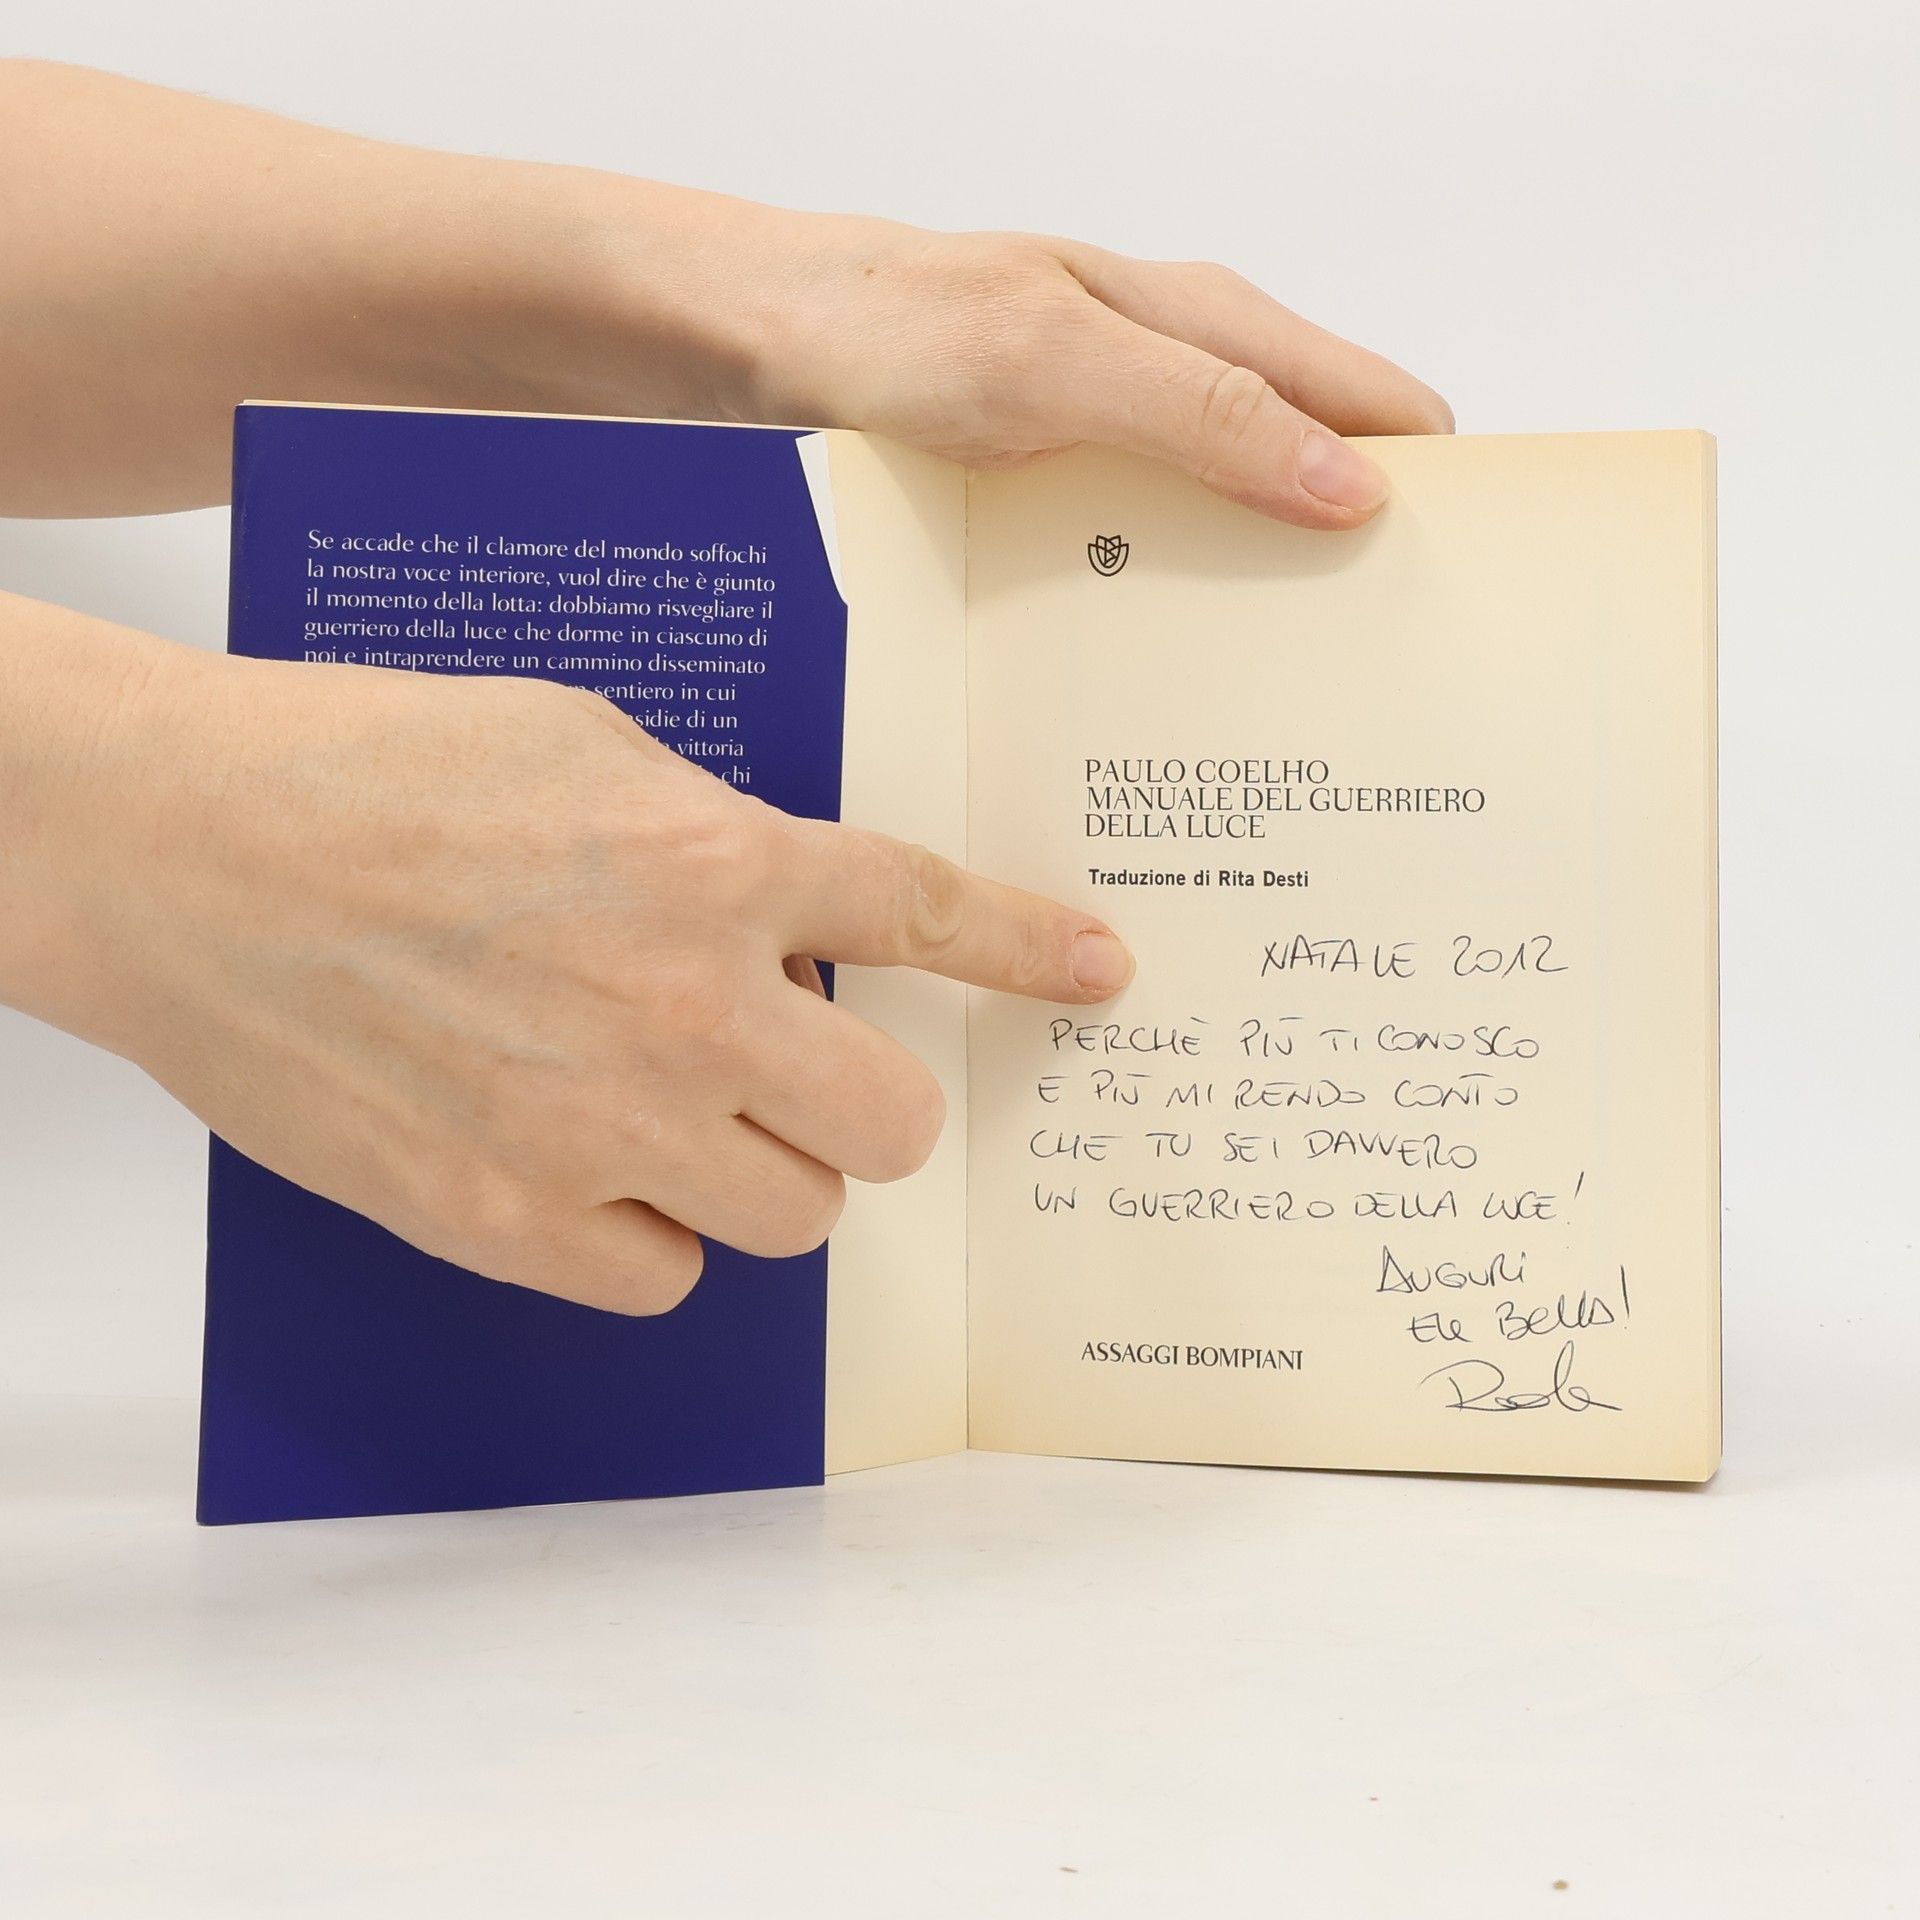 Se accade che il clamore del mondo soffochi
la nostra voce interiore, vuol dire che è giunto
il momento della lotta: dobbiamo risvegliare il
guerriero della luce che dorme in ciascuno di
noi e intraprendere un cammino disseminato
sentiero in cui
di un
vittoria
chi
PAULO COELHO
MANUALE DEL GUERRIERO
DELLA LUCE
Traduzione di Rita Desti
NATALE 2012
PERCHÈ PIÙ TI CONOSCO
E PIÙ MI RENDO CONTO
CHE TU SEI DAVVERO
UN GUERRIERO DELLA LUCE!
AUGURI
Ele Bella!
ASSAGGI BOMPIANI